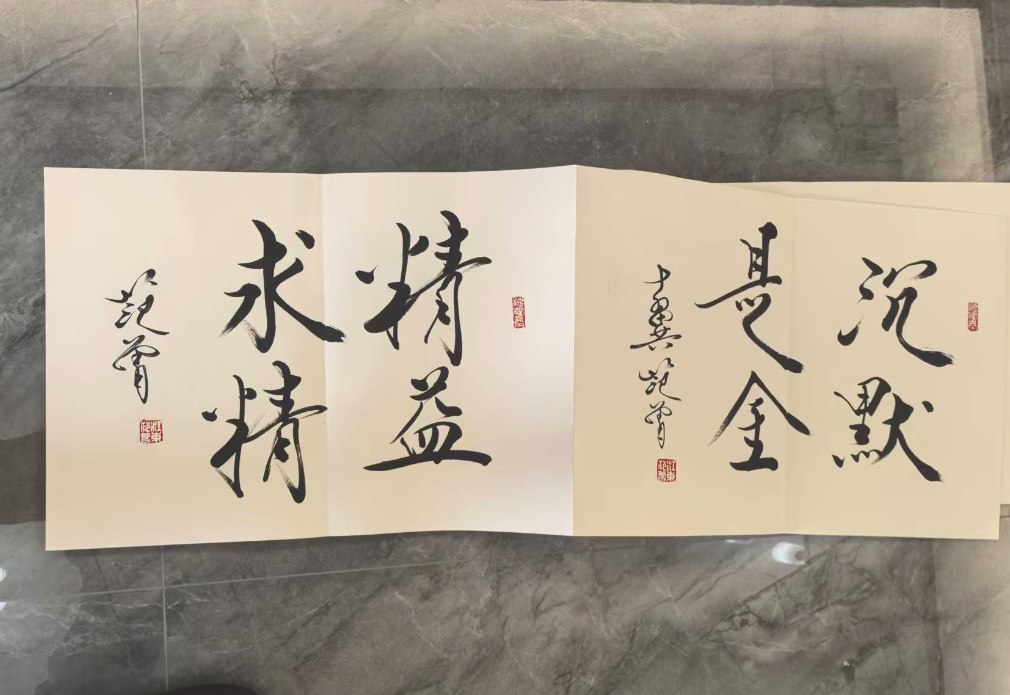 沉默
是金
十翼范曾
精益
求精
范曾